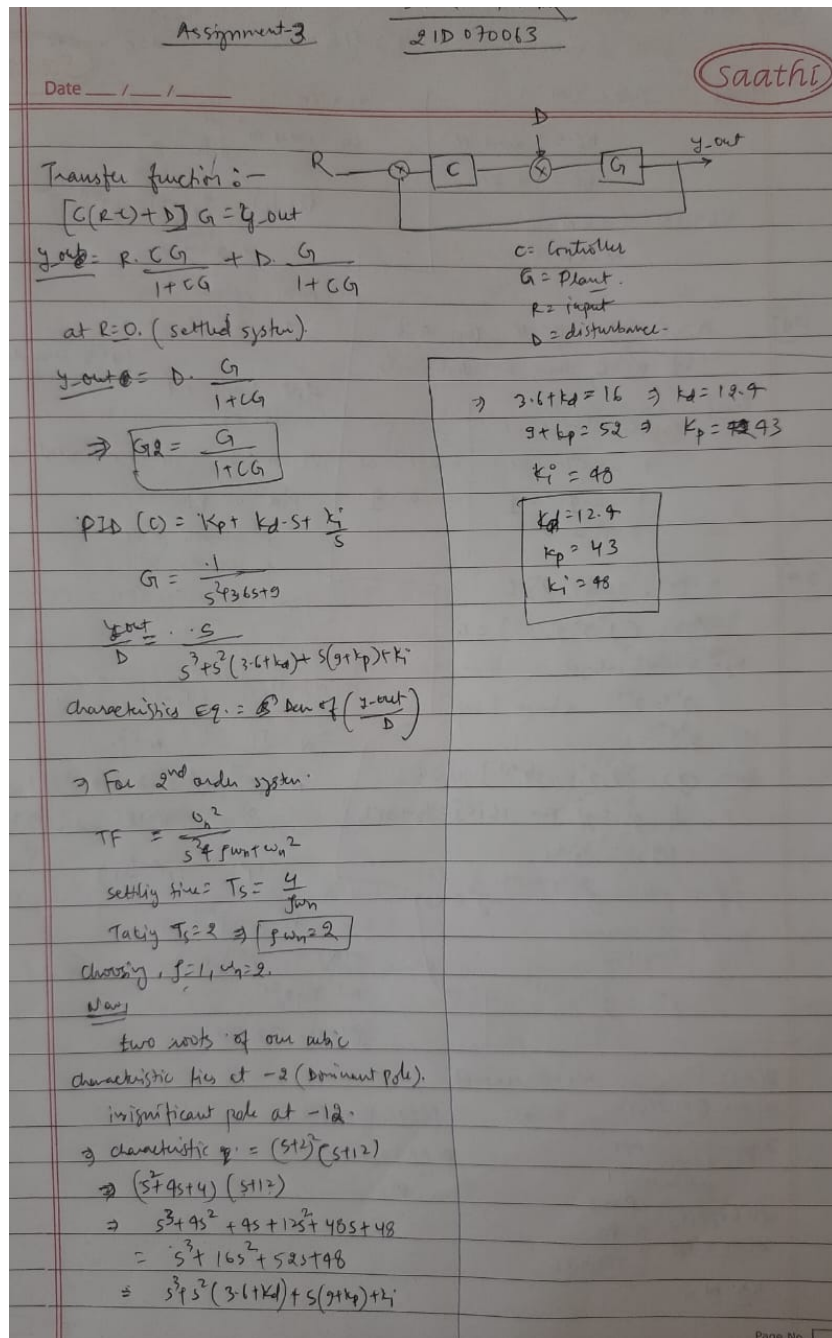 Assignment-3
21D070063
Saathi
Date __/__/____
D
R C G y_out
Transfer function :-
[C(R-c)+D] G = y_out
y_out = R. CG/(1+CG) + D. G/(1+CG)
at R=0. (settled system).
y_out = D. G/(1+CG)
⇒ G2 = G/(1+CG)
PID (C) = Kp + kd·s + ki/s
G = 1/(s²+3.6s+9)
y_out/D = s/(s³+s²(3.6+kd)+s(9+kp)+ki)
characteristics Eq. = Den of (y_out/D)
⇒ For 2nd order system.
TF = ωn²/(s²+ρωn+ωn²)
settliy time = Ts = 4/ρωn
Takiy Ts=2 ⇒ ρωn=2
choosiy, ρ=1, ωn=2.
Now,
two roots of our cubic
characteristic lies at -2 (Dominant pole).
insignificant pole at -12.
⇒ characteristic q. = (s+2)²(s+12)
⇒ (s²+4s+4) (s+12)
⇒ s³+4s²+4s+12s²+48s+48
= s³+16s²+52s+48
= s³+s²(3.6+kd)+s(9+kp)+ki
C = Controller
G = Plant.
R = input
D = disturbance-
⇒ 3.6+kd=16 ⇒ kd=12.4
9+kp=52 ⇒ Kp=43
Ki = 48
Kd=12.4
kp=43
ki=48
Page No.